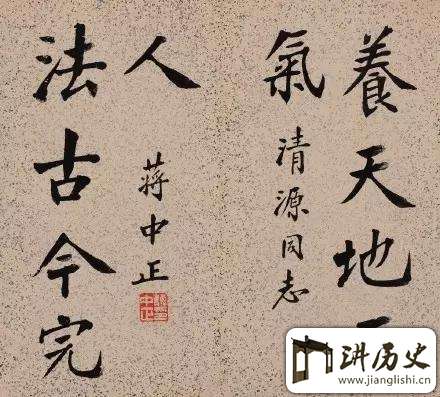 養天地
氣
清源同志
法古今完
人
蔣中正
讲历史
www.jianglishi.cn